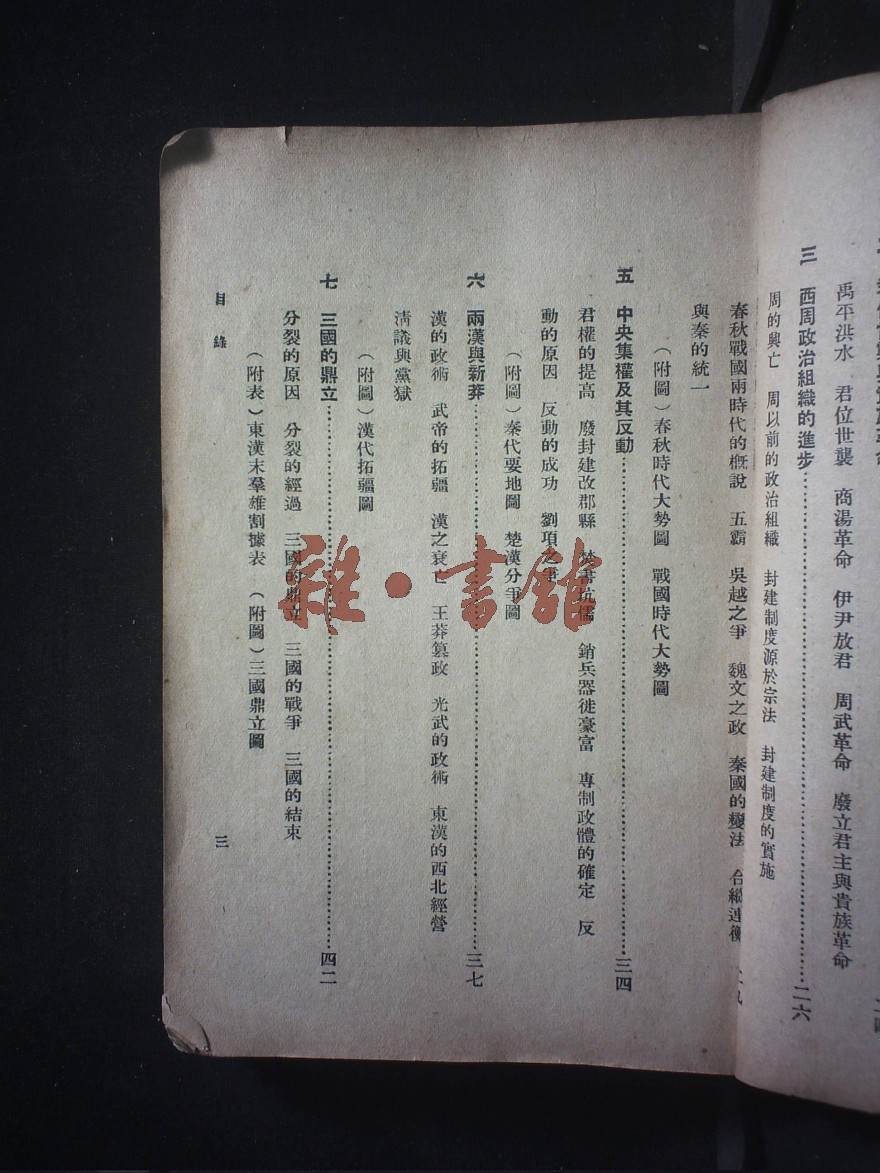 禹平洪水　君位世襲　商湯革命　伊尹放君　周武革命　廢立君主與貴族革命
三　西周政治組織的進步……二六
周的興亡　周以前的政治組織　封建制度源於宗法　封建制度的實施
二九
春秋戰國兩時代的概說　五霸　吳越之爭　魏文之政　秦國的變法　合縱連衡
與秦的統一
（附圖）春秋時代大勢圖　戰國時代大勢圖
五　中央集權及其反動……三四
君權的提高　廢封建改郡縣　焚書坑儒　銷兵器徙豪富　專制政體的確定　反
動的原因　反動的成功　劉項之爭
（附圖）秦代要地圖　楚漢分爭圖
六　兩漢與新莽……三七
漢的政術　武帝的拓疆　漢之衰亡　王莽篡政　光武的政術　東漢的西北經營
淸議與黨獄
（附圖）漢代拓疆圖
七　三國的鼎立……四二
分裂的原因　分裂的經過　三國的鼎立　三國的戰爭　三國的結束
（附表）東漢末羣雄割據表　（附圖）三國鼎立圖
目錄
三
雜·書館